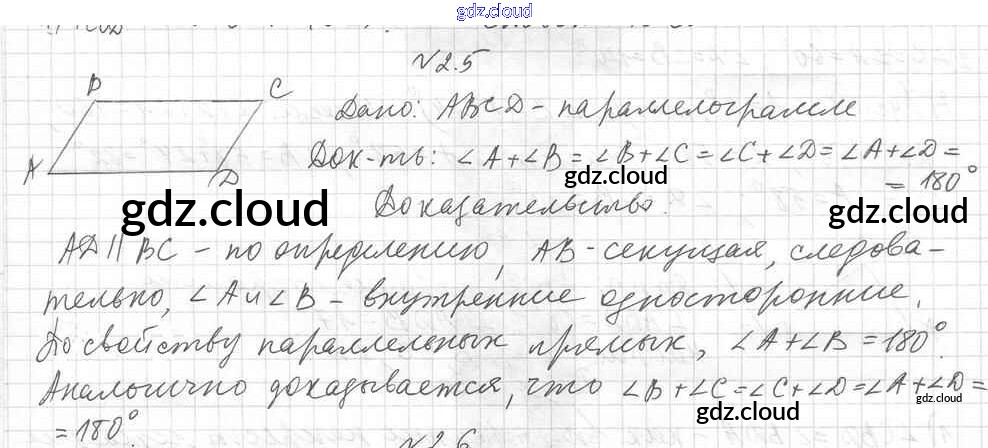 gdz.cloud
N 2.5
B C
A D
Дано: ABCD - параллелограмм
Док-ть: ∠A+∠B=∠B+∠C=∠C+∠D=∠A+∠D=
= 180°
gdz.cloud
gdz.cloud
gdz.cloud
Доказательство.
AD || BC - по определению, AB - секущая, следова-
тельно, ∠A и ∠B - внутренние односторонние.
По свойству параллельных прямых, ∠A+∠B=180°.
Аналогично доказывается, что ∠B+∠C=∠C+∠D=∠A+∠D=
gdz.cloud
gdz.cloud
= 180°.
N 2.6